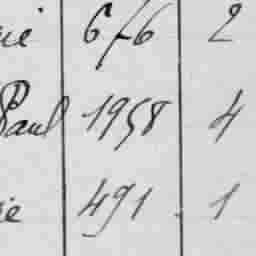 ie 676 2
Paul 1958 4
ie 491 1